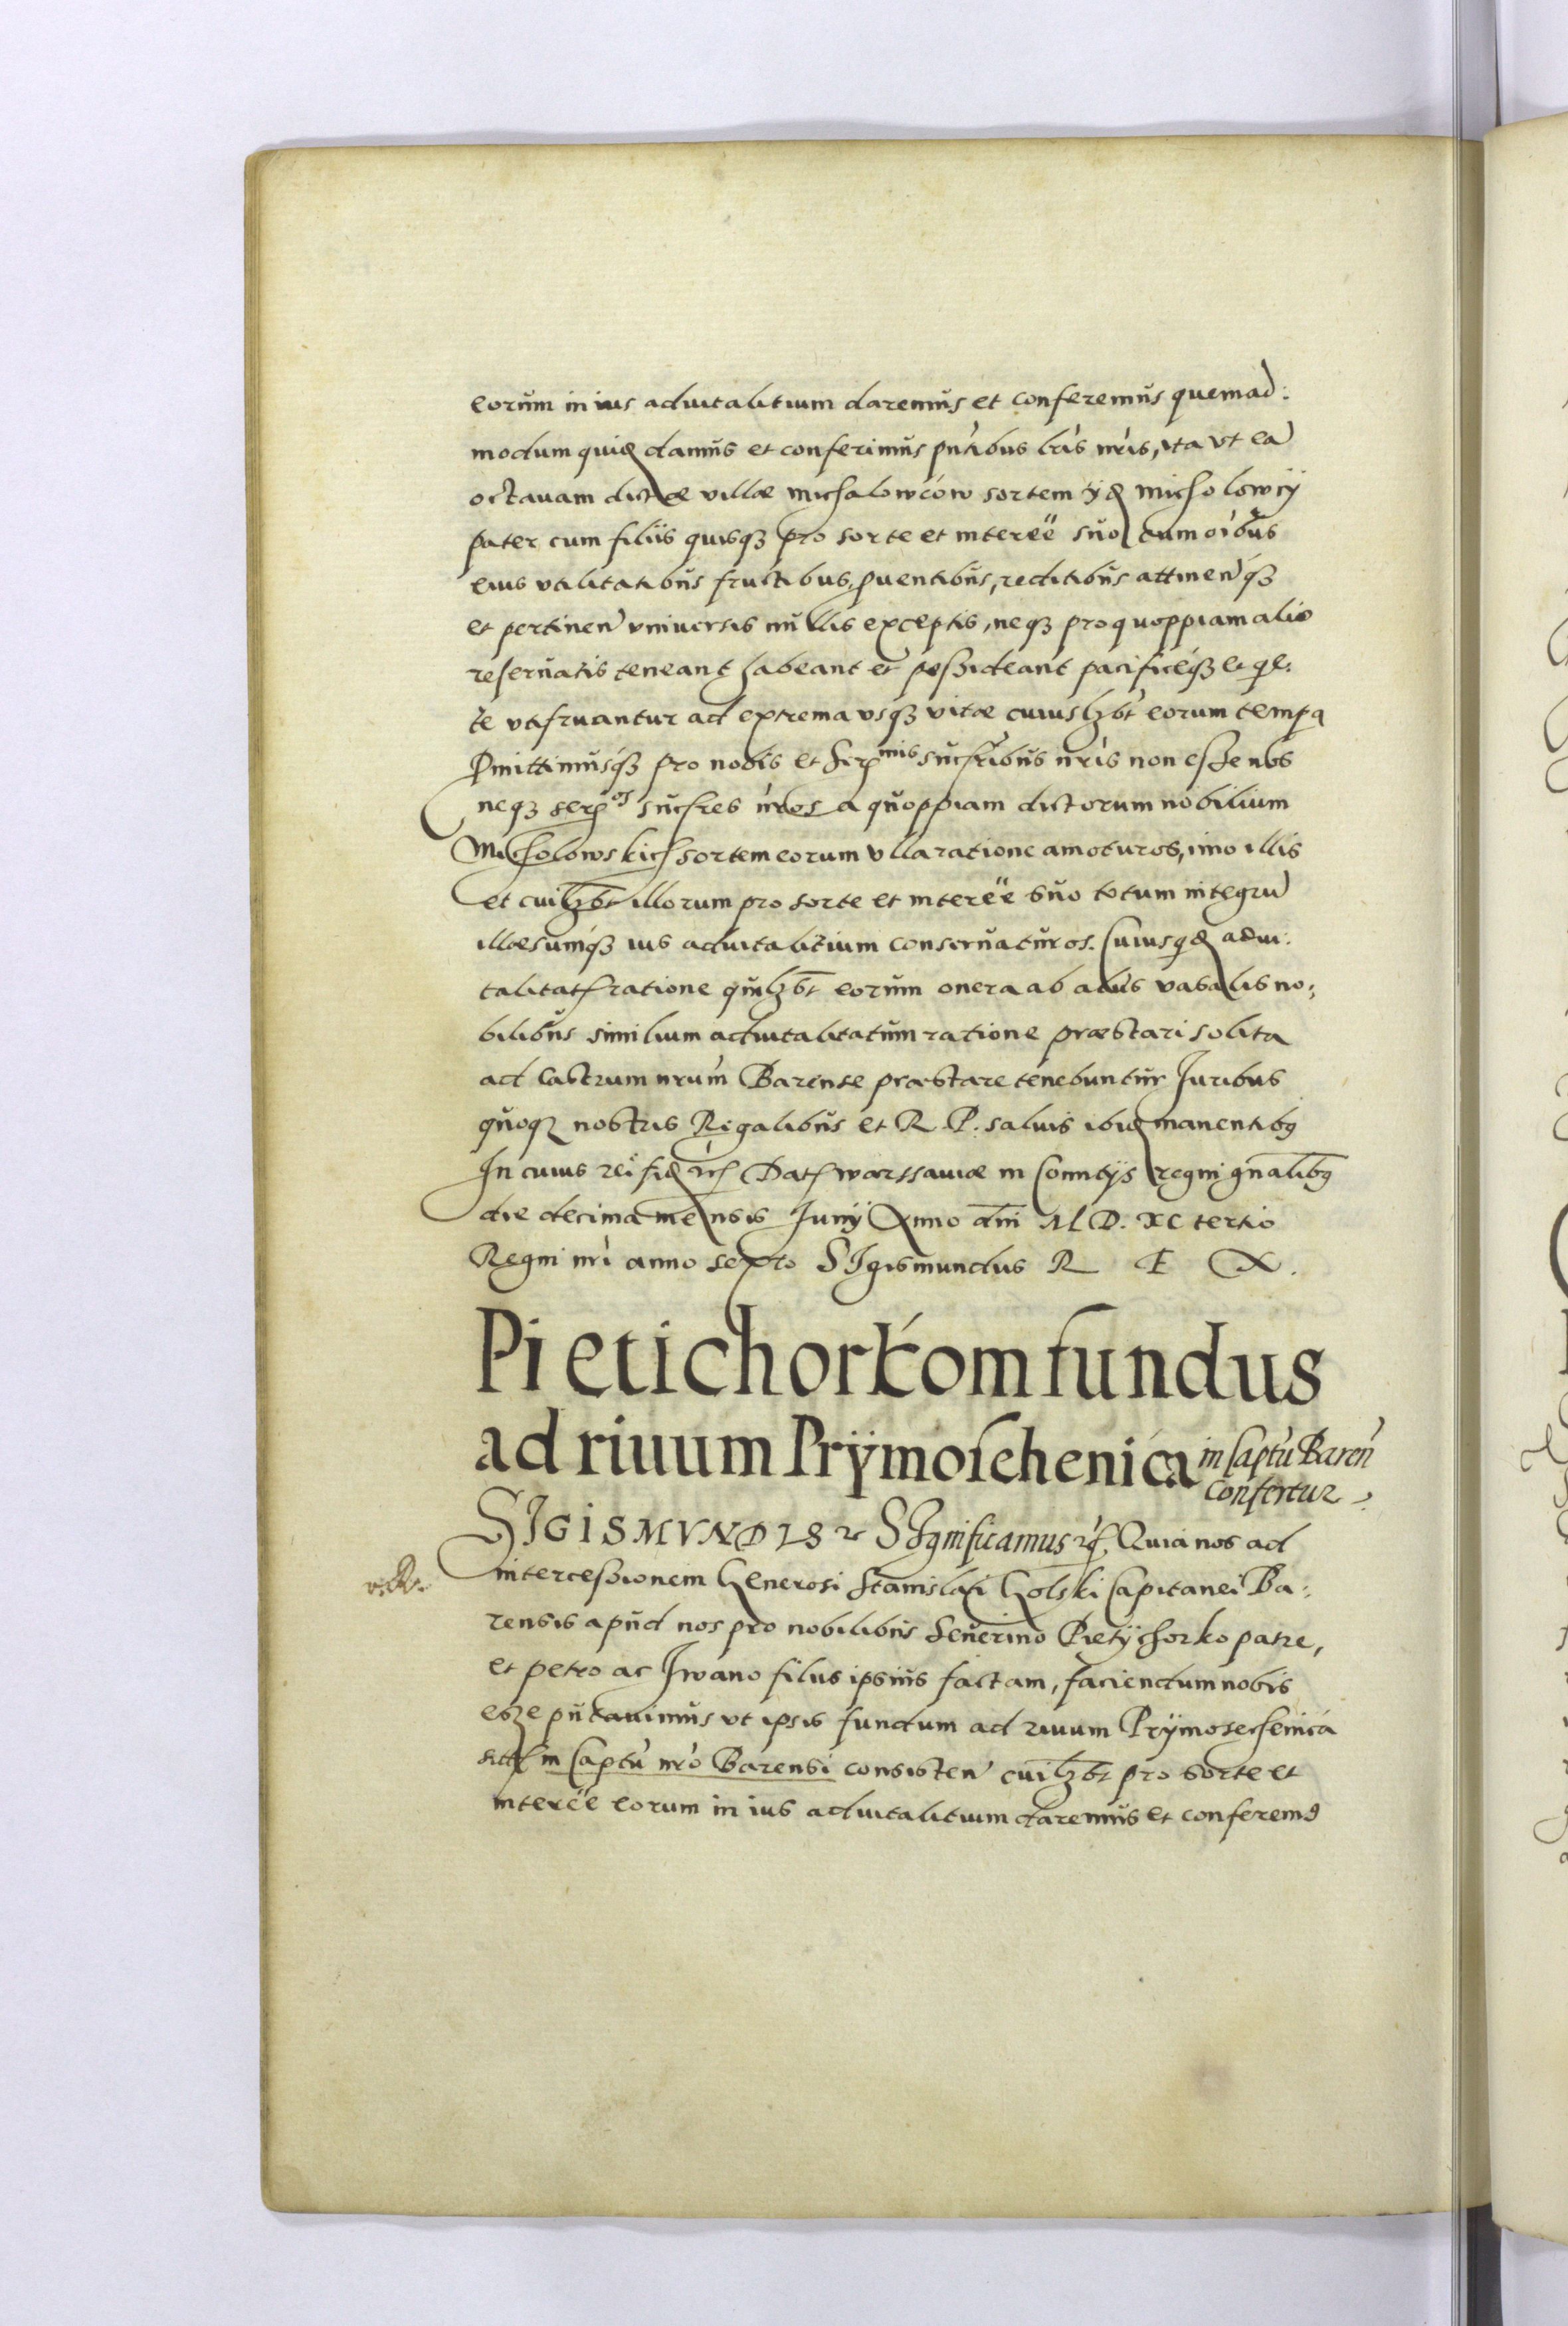 eorum in ius aduitalitium daremus et conferemus quemad:
modum quidẽ damus et conferimus pñtibus lris nris, ita vt eã
octauam dictæ villæ Michalowców sortem ijdẽ Micholowcÿ
pater cum filijs quisqꝫ pro sorte et interẽe suo cum oibus
eius vtilitatibus fructibus, ꝓuentibus, reditibus attineñqꝫ
et pertineñ vniuersis nullis exceptis, neqꝫ pro quoppiam alio
reseruatis teneant habeant et possideant pacificeqꝫ et qe:
te vtifruantur ad extrema vsqꝫ vitæ cuiuslꝫbt eorum tempa
Pmittimusqꝫ pro nobis et Ser^mis sucsribus nris non esse nos
neqꝫ ser^os sucsres nros a quoppiam dictorum nobilium
Micholowskich sortem eorum vlla ratione amoturos, imo illis
et cuilꝫbt illorum pro sorte et interẽe suo totum integrũ
illæsumqꝫ ius aduitalitium conseruaturos. Cuiusqdẽ adui:
talitatis ratione quilꝫbt eorum onera ab alijs vasalis no:
bilibus similium aduitalitatum ratione præstari solita
ad Castrum nrum Barense præstare tenebuntur Juribus
quoqꝫ nostris Regalibus et R. P. saluis ibidẽ manentibꝰ
In cuius rei fidẽ etc Dat Warssauiæ in Comitijs regni gnalibꝰ
die decima mensis Junij Anno dni M D. XC tertio
Regni nri anno sexto SIgismundus R E X.
Pietichorkom fundus
ad riuum Prÿmoschenica in Captu Bareñ
Confertur
SIGISMVNDVS etc SIgnificamus etc. Quia nos ad
intercessionem Generosi Stanislai Golski Capitanei Ba:
rensis apud nos pro nobilibus Seuerino Pietÿchorko patre,
et Petro ac Jwano filijs ipsius factam, faciendum nobis
esse putauimus vt ipsis fundum ad riuum Prÿmoschenica
sitũ in Captu nro Barensi consisteñ cuilꝫbt pro sorte et
interẽe eorum in ius aduitalitium daremus et conferemꝰ